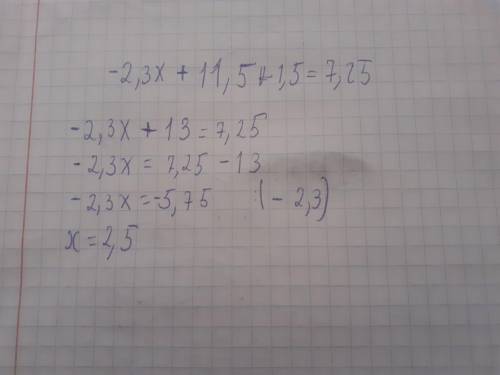 -2,3x + 11,5+1,5=7,25
-2,3x + 13=7,25
-2,3x = 7,25 -13
-2,3x=-5,75 :(- 2,3)
x=2,5